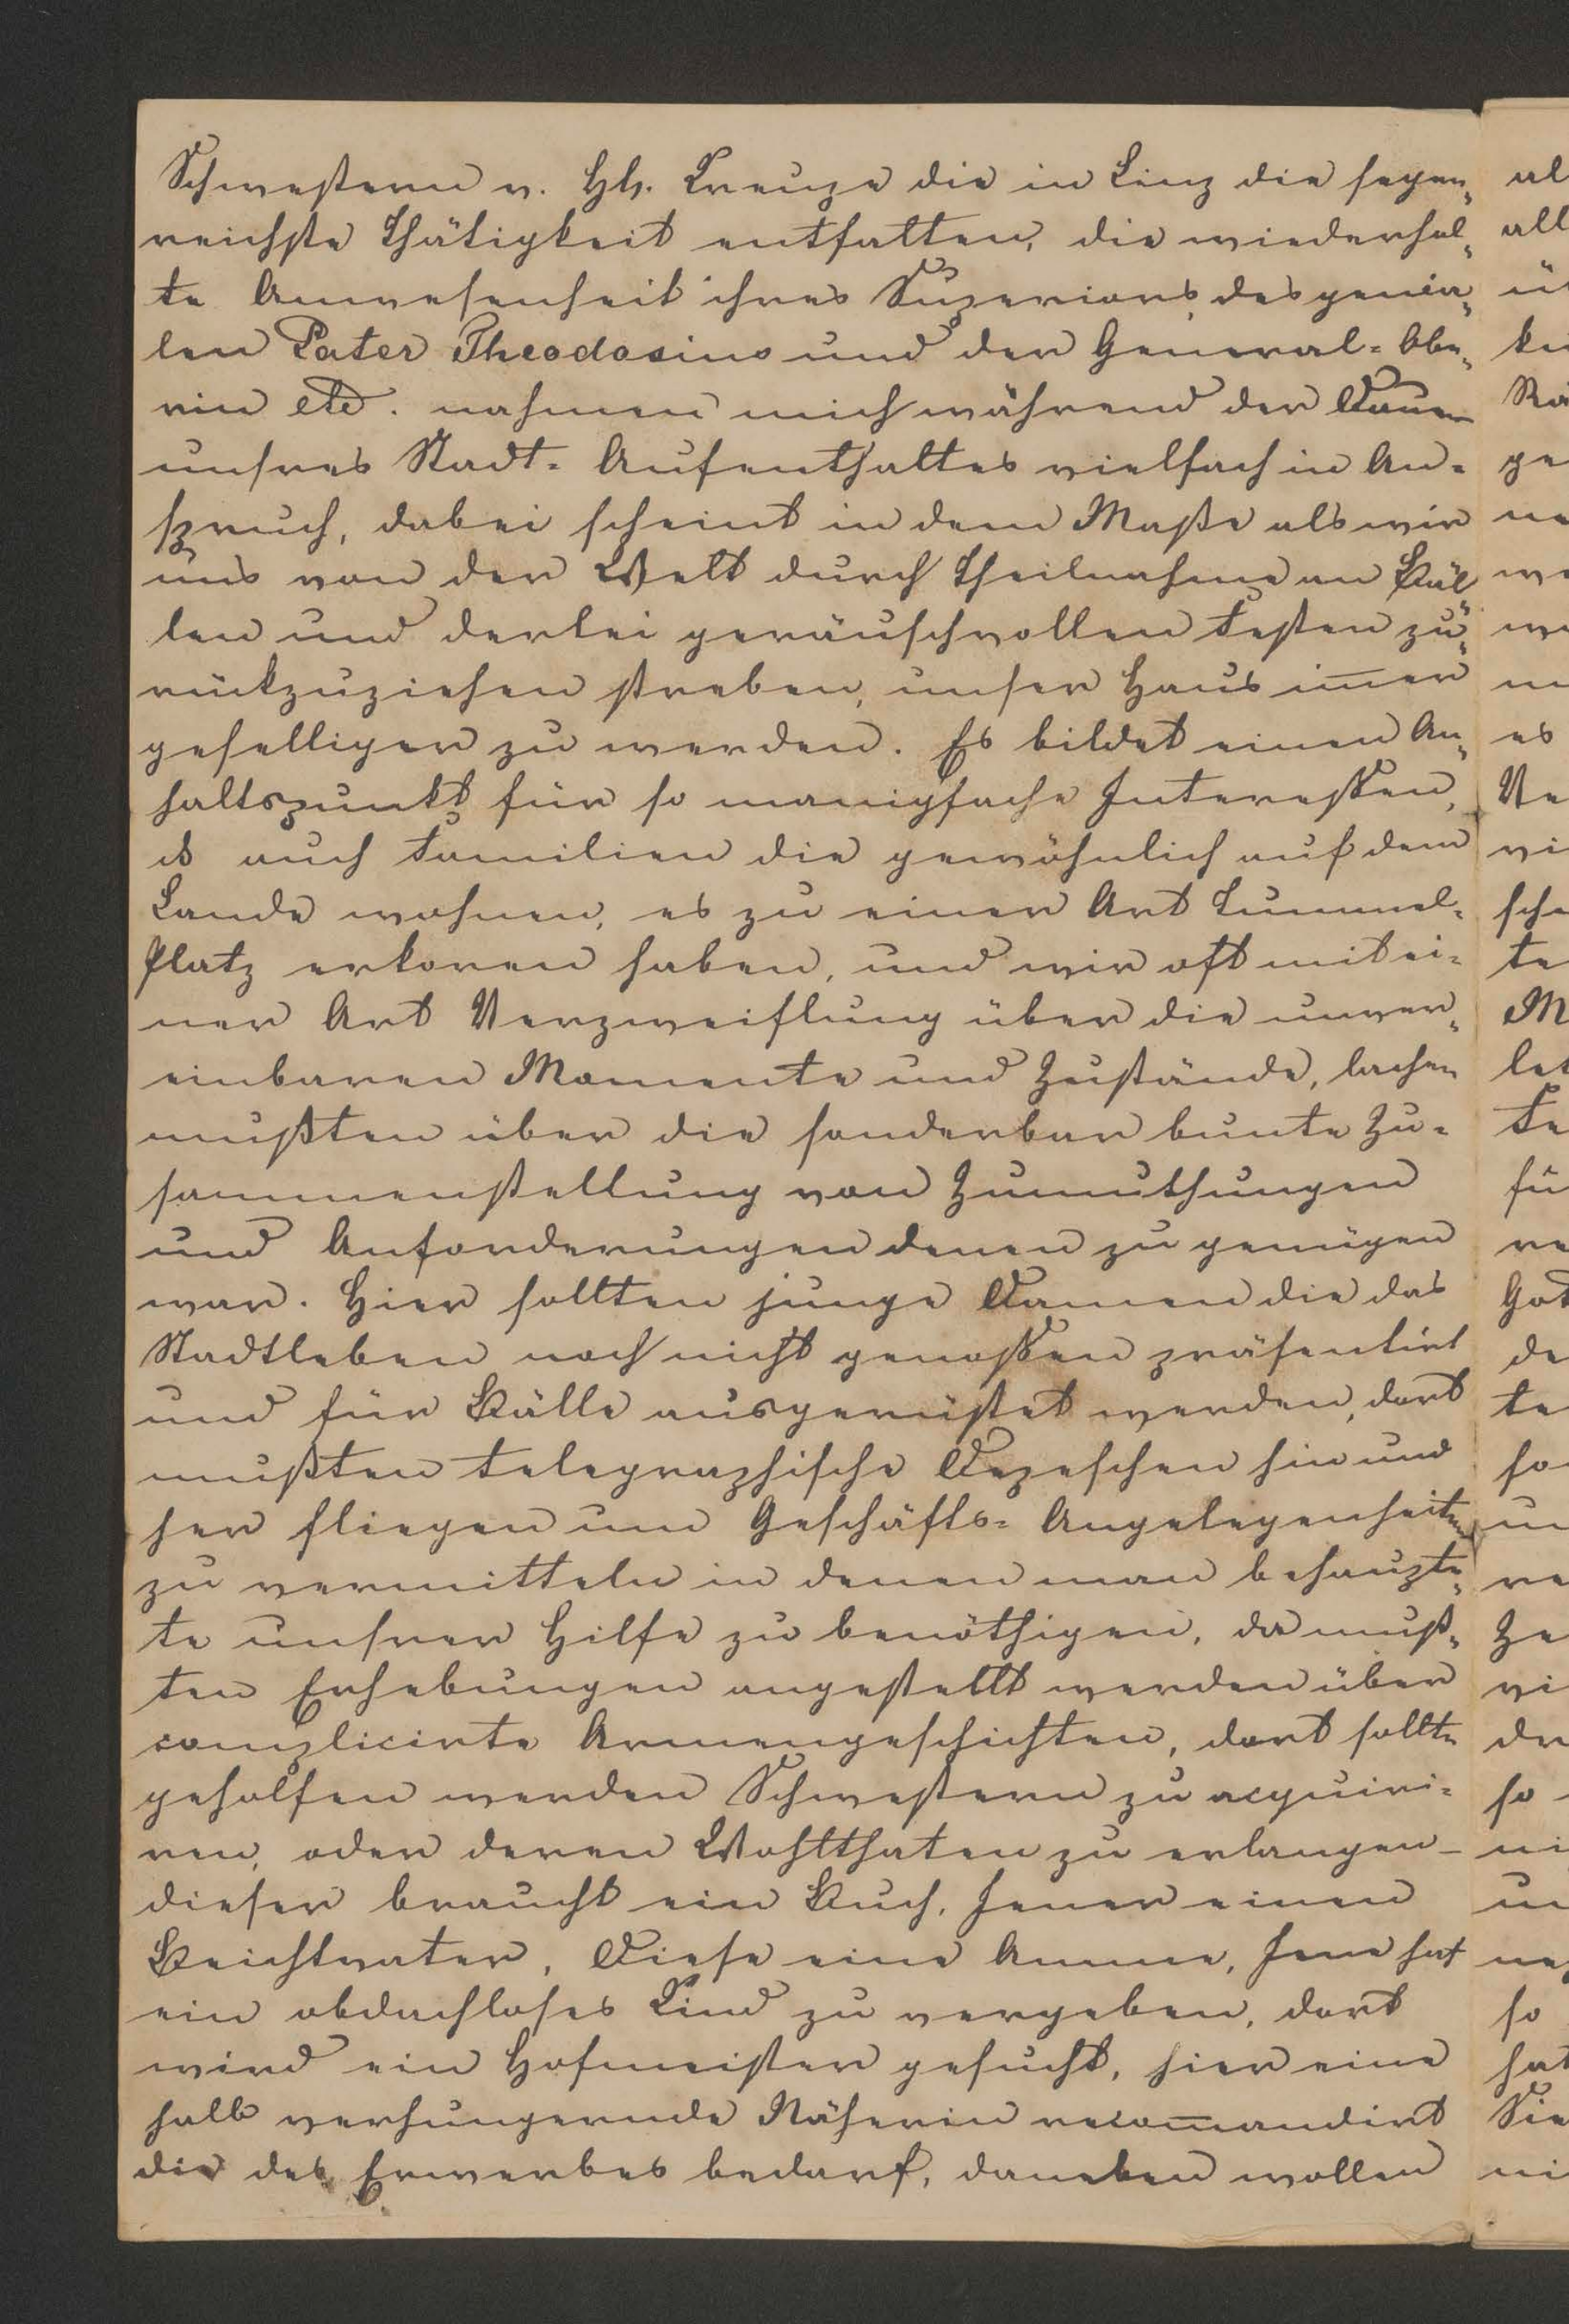 Schwestern v. Hh. Kreuze die in Linz die segen„
reichste Thätigkeit entfalten, die wiederhol„
te Anwesenheit ihres Superiors, des genia„
len Pater Theodosius und der General= Obe„
rin etc. nahmen mich während der Dauer
unsres Stadt= Aufenthaltes vielfach in An=
spruch, dabei scheint in dem Maße als wir
uns von der Welt durch Theilnahme an Bäl„
len und derlei geräuschvollen Festen zu„
rückzuziehen streben, unser Haus im̅er
geselliger zu werden. Es bildet einen An„
haltspunkt für so manigfache Interessen,
ds auch Familien die gewöhnlich auf dem
Lande wohnen, es zu einer Art Tummel=
Platz erkoren haben, und wir oft mit ei=
ner Art Verzweiflung über die unver„
einbaren Momente und Zustände, lachen
mußten über die sonderbar bunte Zu=
sammenstellung von Zumuthungen
und Anforderungen denen zu genügen
war. Hier sollten junge Damen die das
Stadtleben noch nicht genossen präsentirt
und für Bälle ausgerüstet werden, dort
mußten telegraphische Depeschen hin und
her fliegen um Geschäfts= Angelegenheiten
zu vermitteln in denen man behaupte„
te unsrer Hilfe zu benöthigen, da muß„
ten Erhebungen angestellt werden über
complicirte Armengeschichten, dort sollte
geholfen werden Schwestern zu acquiri=
ren, oder deren Wohlthaten zu erlangen –
dieser braucht ein Buch, Jener einen
Beichtvater, Diese eine Amme, Jene hat
ein obdachloses Kind zu vergeben, dort
wird ein Hofmeister gesucht, hier eine
halb verhungernde Näherin recom̅andirt
die des Erwerbes bedarf, daneben wollen